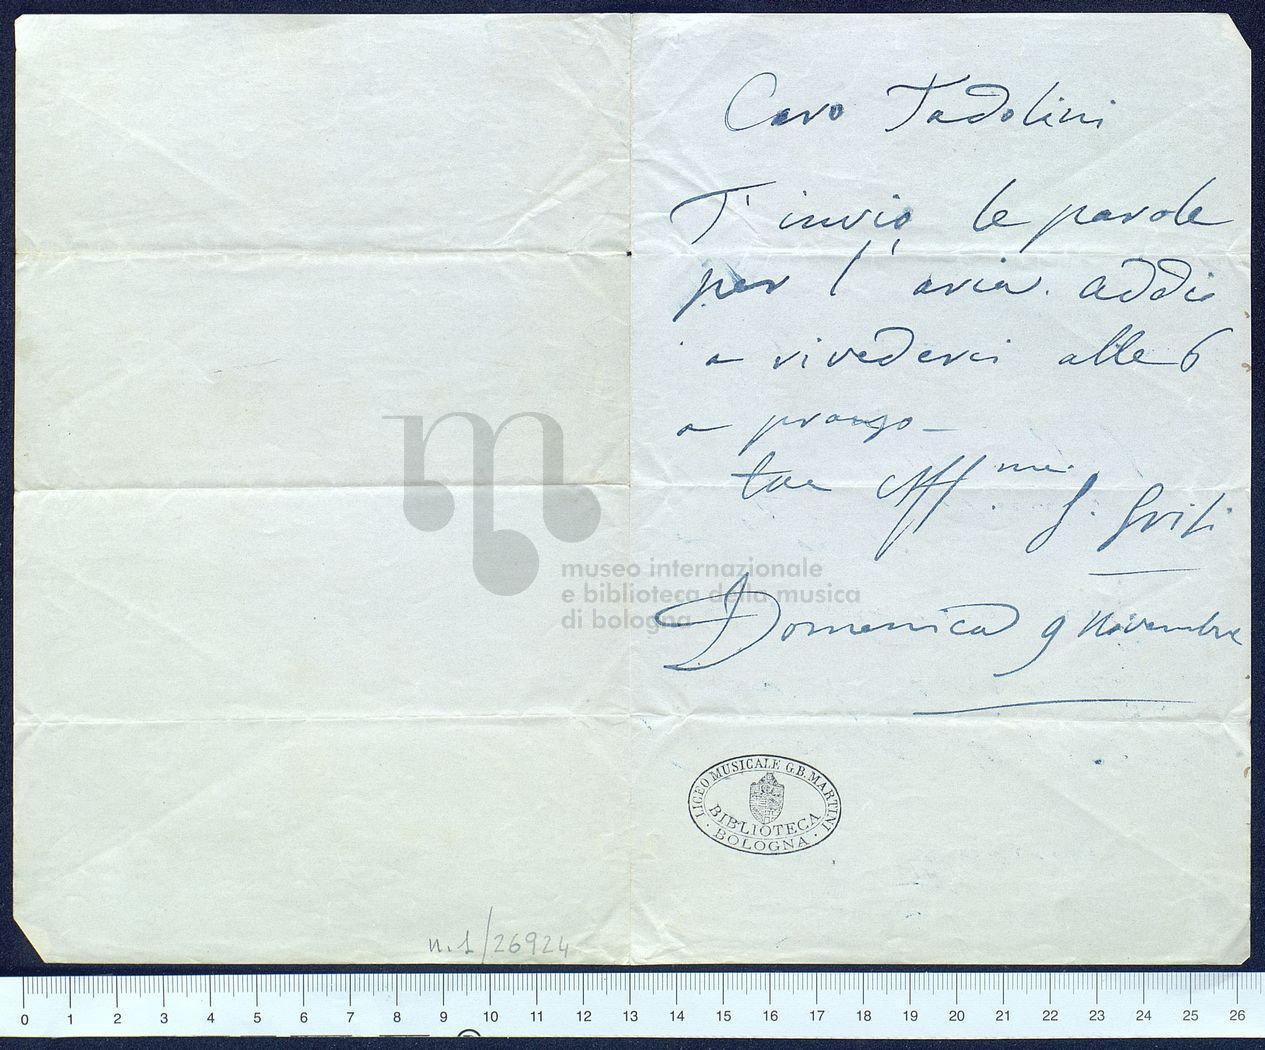 Caro Tadolini
T' invio le parole
per l' aria. addio
a rivederci alle 6
a pranzo –
tua affma. G. Grisi
Domenica 9 Novembre
museo internazionale
e biblioteca della musica
di bologna
LICEO MUSICALE G.B. MARTINI
BIBLIOTECA
· BOLOGNA ·
n. 1/26924
0 1 2 3 4 5 6 7 8 9 10 11 12 13 14 15 16 17 18 19 20 21 22 23 24 25 26